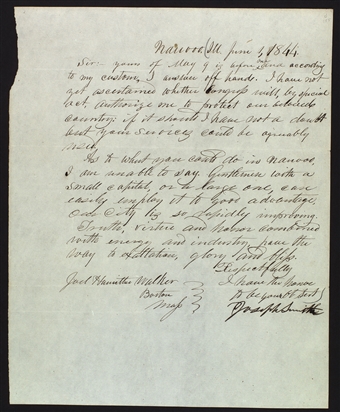 Nauvoo, Ill. June 1, 1844
Sir: yours of May 9 is before me, and according
to my custom, I answer off hand. I have not
yet ascertained whether Congress will, by special
act, authorize me to protect our beloved
country: if it should I have not a doubt
but your services could be agreeably
used.
As to what you could do in Nauvoo,
I am unable to say. Gentlemen with a
small capital, or a large one, can
easily employ it to good advantage.
Our City is so rapidly improving.
Truth, virtue and honor combined
with energy and industry, pave the
way to exaltation, glory and bliss.
Respectfully
I have the honor
to be your Obt Servt
Joseph Smith
Joel Hamilton Walker
Boston
Mass